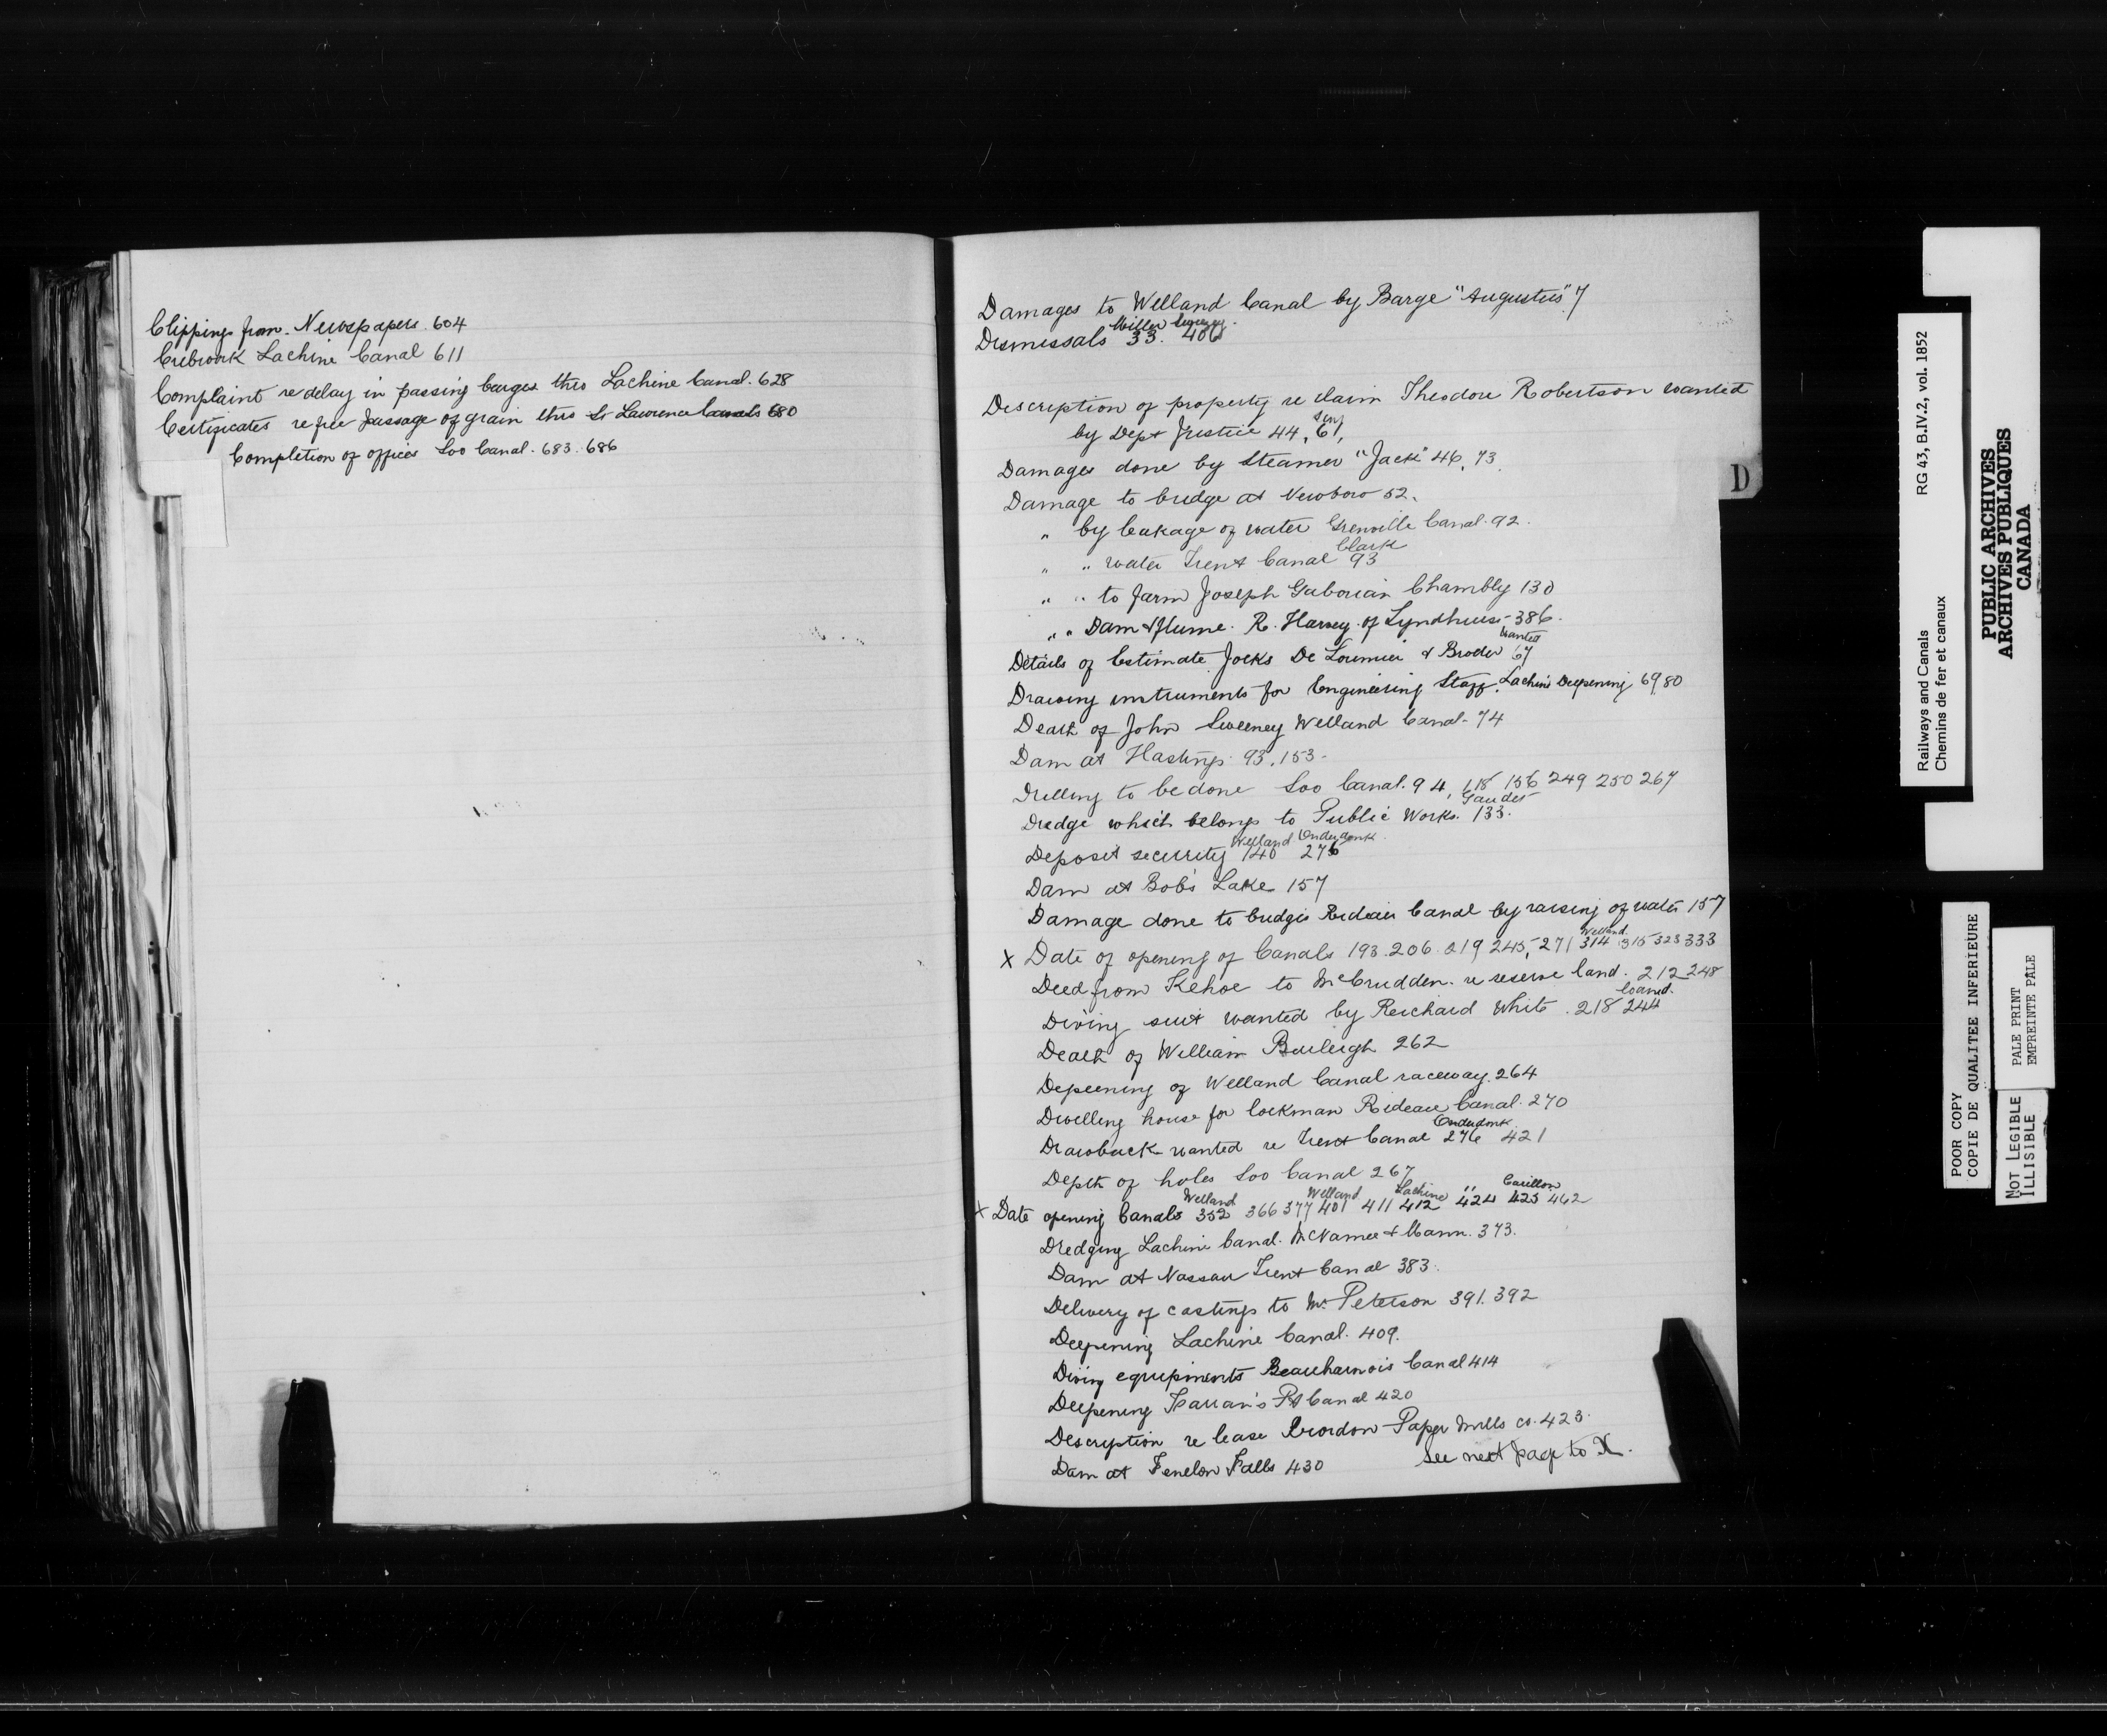 Clippings from Newspapers. 604
Cribwork Lachine Canal 611
Complaint re delay in passing barges thro Lachine Canal. 628
Certificates re free passage of grain thro St Lawrence Canals 680
Completion of offices Soo Canal. 683. 686
Damages to Welland Canal by Barge "Augustus" 7
Miller Sweeney
Dismissals 33. 406
Description of property re claim Theodore Robertson wanted
by Dept Justice 44, 61,
Damages done by Steamer "Jack" 46, 73
Damage to bridge at Newboro 52.
" by leakage of water Grenville Canal. 92.
Clark
" " water Trent Canal 93
" " to farm Joseph Gaborian Chambly 130
" " Dam & flume. R. Harvey of Lyndhurst 386.
wanted
Details of Estimate Jocks De Lorimier & Broder 67
Drawing instruments for Engineering Staff. Lachine Deepening 69, 80
Death of John Sweeney Welland Canal. 74
Dam at Hastings. 93, 153.
Drilling to be done Soo Canal. 94, 118 156 249 250 267
Dredge which belongs to Public Works. 133.
Welland Onderdonk
Deposit security 140 276
Dam at Bob's Lake 157
Damage done to bridges Rideau Canal by raising of water 157
Welland
X Date of opening of Canals 193. 206. 219 245, 271 314 315 323 333
Deed from Kehoe to McCrudden. re reserve land. 212 248
loaned.
Diving suit wanted by Reichard White. 218 244
Death of William Burleigh 262
Deepening of Welland Canal raceway. 264
Dwelling house for lockman Rideau Canal. 270
Onderdonk
Drawback wanted re Trent Canal 276 421
Depth of holes Soo Canal 267
Welland Welland Lachine " Carillon
X Date opening Canals 352 366 377 401 411 412 424 425 462
Dredging Lachine Canal. McNamee & Mann. 373.
Dam at Nassau Trent Canal 383.
Delivery of castings to Mr Peterson 391. 392
Deepening Lachine Canal. 409.
Diving equipments Beauharnois Canal 414
Deepening Farran's Pt Canal 420
Description re lease Riordon Paper Mills Co. 423.
Dam at Fenelon Falls 430 See next page to X.
D
Railways and Canals RG 43, B.IV.2, vol. 1852
Chemins de fer et canaux
PUBLIC ARCHIVES
ARCHIVES PUBLIQUES
CANADA
POOR COPY
COPIE DE QUALITEE INFERIEURE
PALE PRINT
EMPREINTE PALE
NOT LEGIBLE
ILLISIBLE